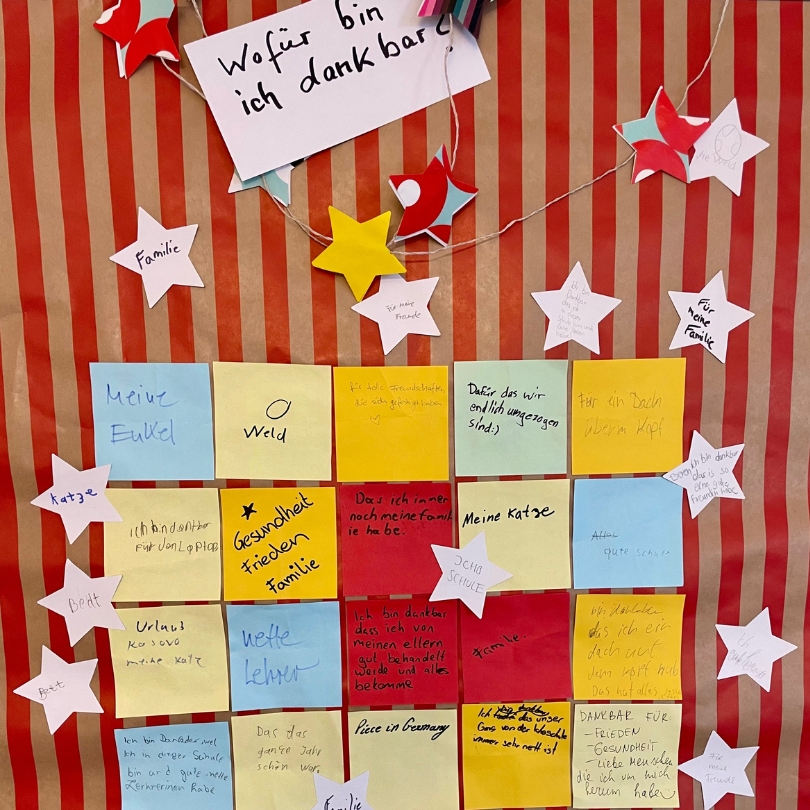 Wofür bin
ich dankbar?
Familie
Für meine
Freunde
Für
meine
Familie
Meine
Enkel
Weld
für tolle Freundschaften
die sich
Dafür das wir
endlich umgezogen
sind:)
Für ein Dach
überm Kopf
Katze
ich bin
für den Laptop
Gesundheit
Frieden
Familie
Das ich immer
noch meine Famil
ie habe.
Meine Katze
JCHB
SCHULE
gute Schule
das is so
eine gute
Freundin habe
Bett
Urlaub
Kosovo
meine Katz
nette
Lehrer
Ich bin dankbar
dass ich von
meinen eltern
gut behandelt
werde und alles
bekomme
Familie.
das ich ein
dach
dem kopf hab
Bett
Ich bin
Ich in einer Schule
bin und gute nette
Lehrerinen habe
Das das
ganze Jahr
schön war.
Familie
Piece in Germany
Ich das unser
Gang von der
immer sehr nett ist
DANKBAR FÜR
-FRIEDEN
-GESUNDHEIT
-Liebe Menschen
die ich um mich
herum habe
Für
meine
Freunde